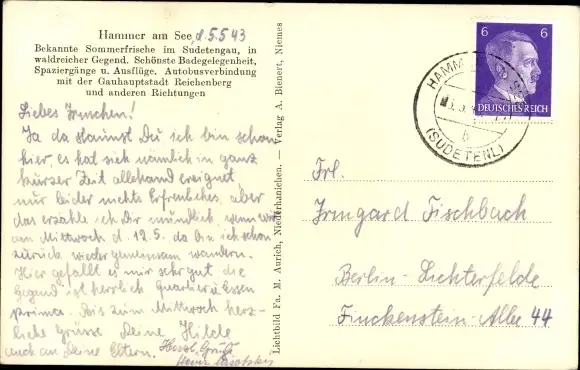 Hammer am See, d. 5.5.43
Bekannte Sommerfrische im Sudetengau, in
waldreicher Gegend. Schönste Badegelegenheit,
Spaziergänge u. Ausflüge. Autobusverbindung
mit der Gauhauptstadt Reichenberg
und anderen Richtungen
Liebes Irmchen!
Ja da staunst Du ich bin schon
hier, es hat sich nämlich in ganz
kurzer Zeit allerhand ereignet
nur leider nichts Erfreuliches, aber
das erzähle ich Dir mündlich, wenn wir
am Mittwoch d. 12.5. da bin ich schon
zurück wieder gemeinsam wandern.
Hier gefällt es mir sehr gut die
Gegend ist herrlich Quartier u Essen
prima. Bis zum Mittwoch herz-
liche Grüsse Deine Hilde
auch an Deine Eltern. Herzl. Gruß
Lichtbild Fa. M. Aurich, Niederhanichen. — Verlag A. Bienert, Niemes
6 6
DEUTSCHES REICH
HAMM
(SUDETENL)
b
Frl.
Irmgard Fischbach
Berlin-Lichterfelde
Finckenstein-Allee 44